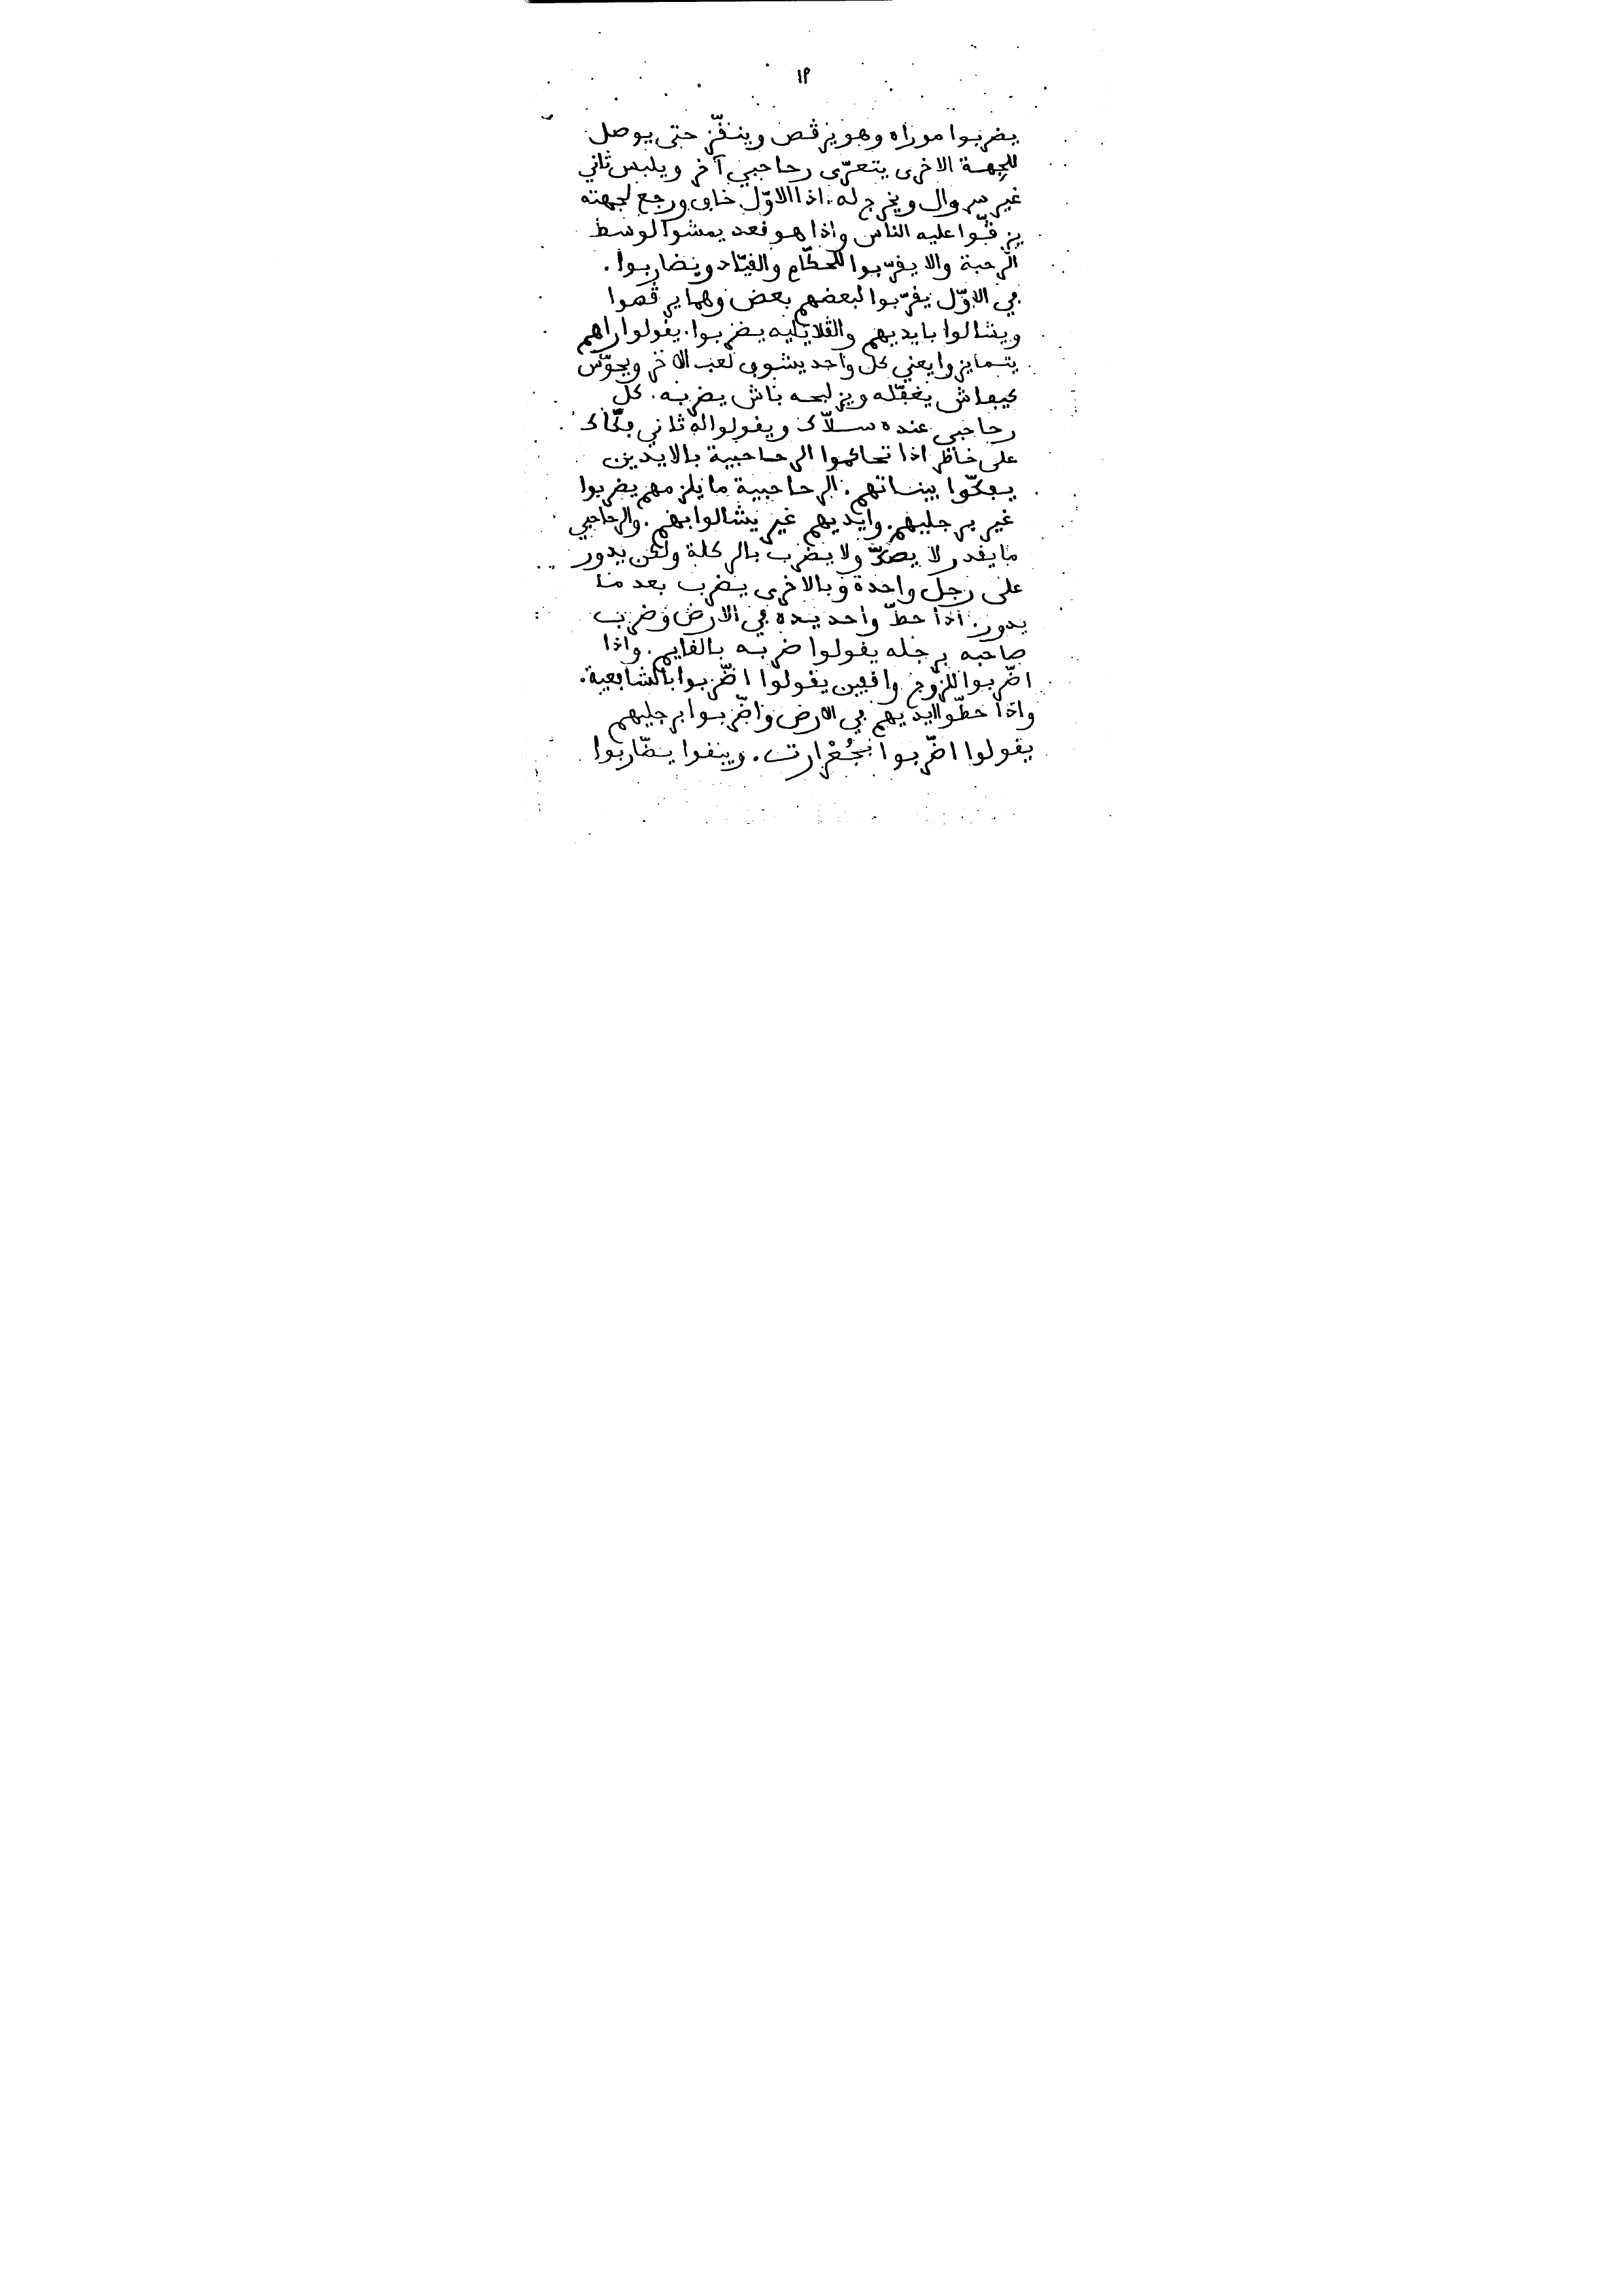 ١٩
يضربوا موراه وهو يرڨص وينڢّز حتى يوصل
للجهة الاخرى يتعرّى رحاجبي آخر ويلبس ثاني
غير سروال ويخرج له. اذا الاوّل خاڢ ورجع لجهته
يزڧّوا عليه الناس واذا هو ڧعد يمشوا لوسط
الرحبة والا يڧرّبوا للحطّام والڧيّاد ويضاربوا.
ڢي الاوّل يڧرّبوا لبعضهم بعض وهما يرڨصوا
ويشالوا بايديهم والڨلايليه يضربوا. يڧولوا راهم
يتمايزوا يعني كل واحد يشوڢ لعب الآخر ويحوّس
كيڢاش يغڢّله ويزلبحه باش يضربه. كل
رحاجبي عنده سلّاك ويڧولوا له ثاني ڢكّاك
على خاطر اذا تحاكموا الرحاجبية بالايدين
يڢكّوا بيناتهم. الرحاجبية ما يلزمهم يضربوا
غير برجليهم. وايديهم غير يشالوا بهم. والرحاجبي
ما يڧدر لا يصكّ ولا يضرب بالركلة ولكن يدور
على رجل واحدة وبالاخرى يضرب بعد ما
يدور. اذا حطّ واحد يده ڢي الارض وضرب
صاحبه برجله يڧولوا ضربه بالڧايم. واذا
اضّربوا للزوج واڧڢين يڧولوا اضّربوا بالشاڢعية.
واذا حطّوا ايديهم ڢي الارض واضّربوا برجليهم
يڧولوا اضّربوا بجُغْرارت. ويبڧوا يضّاربوا